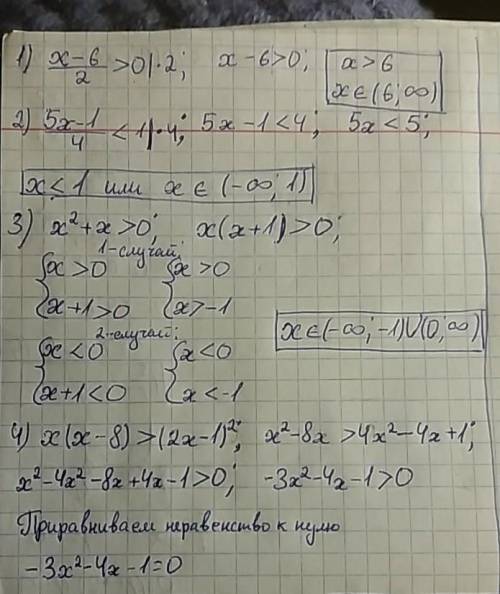 1) (x-6)/2 >0|·2; x-6>0; x>6
x∈(6;∞)
2) (5x-1)/4 <1|·4; 5x-1<4; 5x<5;
x<1 или x∈(-∞;1)
3) x²+x>0; x(x+1)>0;
1-случай:
{x>0 {x>0
{x+1>0 {x>-1
2-случай:
{x<0 {x<0
{x+1<0 {x<-1
x∈(-∞;-1)∪(0;∞)
4) x(x-8)>(2x-1)²; x²-8x>4x²-4x+1;
x²-4x²-8x+4x-1>0; -3x²-4x-1>0
Приравниваем неравенство к нулю
-3x²-4x-1=0